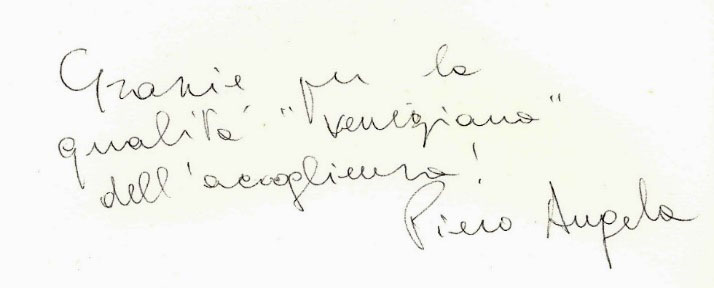 Grazie per la
qualità "veneziana"
dell'accoglienza!
Piero Angela